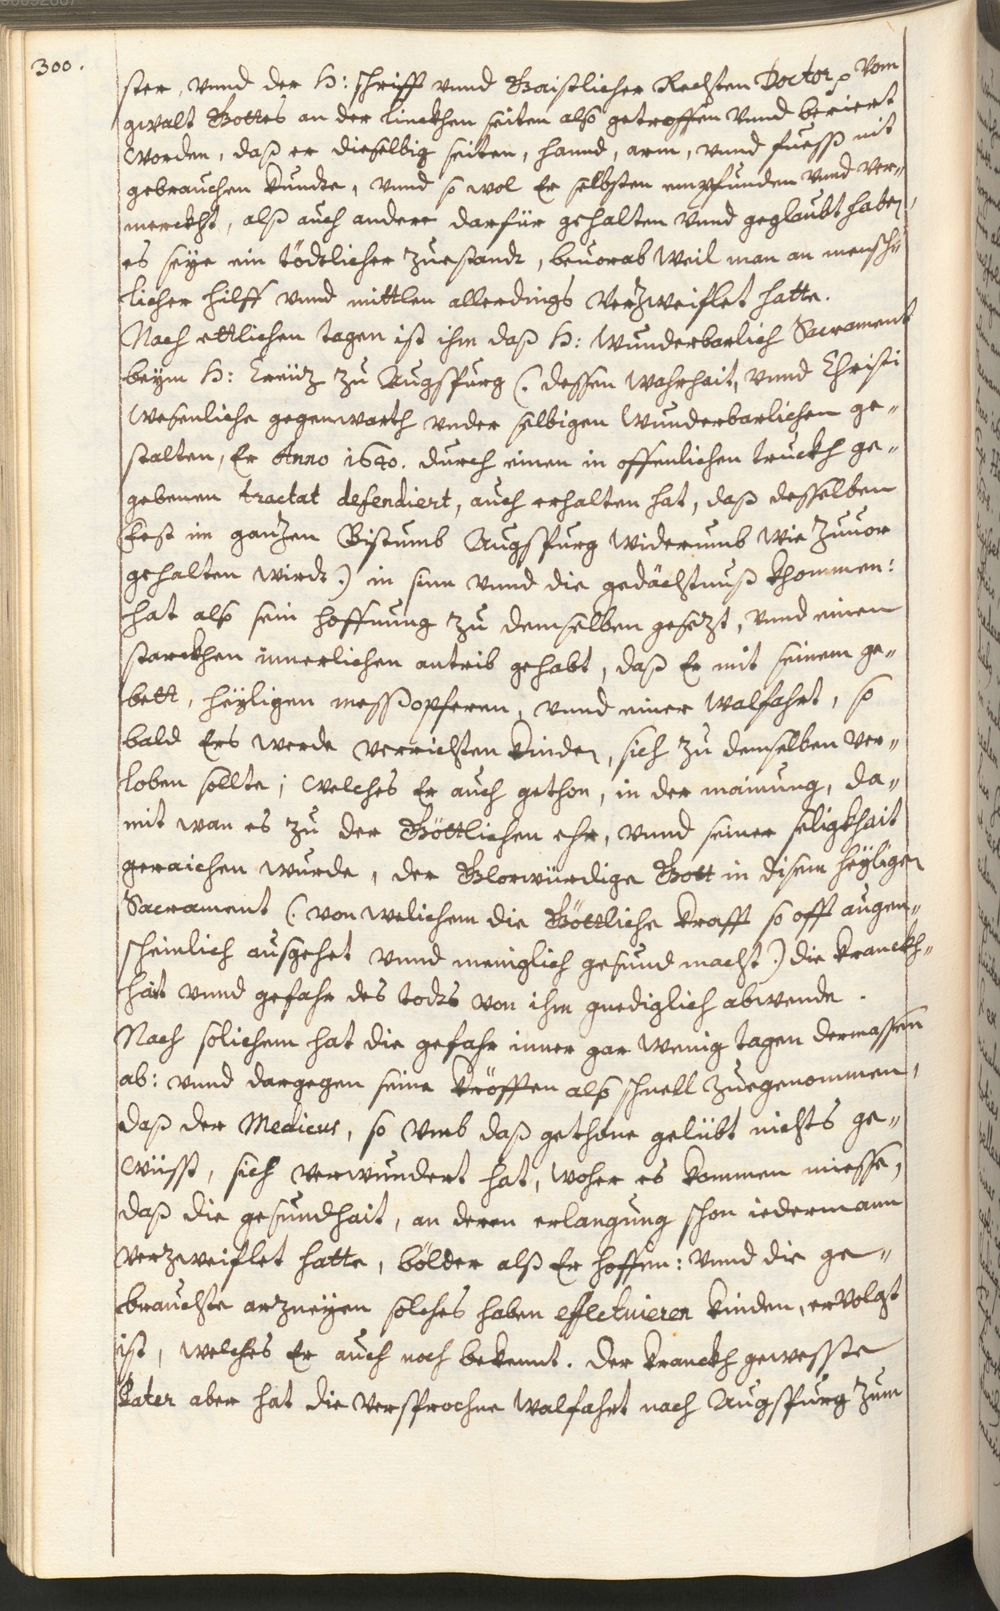 300.
ster, vnnd der H: schrifft vnnd Gaistlicher Rechten Doctor, vom
gwalt Gottes an der linckhen seiten also getroffen vnnd beriert
worden, daß er dieselbig seiten, hannd, arm, vnnd fuesß nit
gebrauchen kundte, vnnd so wol Er selbsten empfunden vnd ver-
merckht, alß auch andere darfür gehalten vnnd geglaubt haben,
es seye ein tödtlicher zuestandt, beuorab weil man an mensch-
licher hilff vnnd mittlen allerdings verzweiflet hatte.
Nach ettlichen tagen ist ihm daß H: wunderbarlich Sacrament
beym H: Creüz zu Augspurg (: dessen wahrhait, vnnd Christi
wesenliche gegenwarth vnder selbigen wunderbarlichen ge-
stalten, Er Anno 1640. durch einen in offenlichen truckh ge-
gebenen tractat defendiert, auch erhalten hat, daß desselben
Fest im ganzen Bistumb Augspurg widerumb wie zuuor
gehalten wirdt.) in sinn vnnd die gedächtnuß khommen:
hat also sein hoffnung zu demselben gesezt, vnnd einen
starckhen innerlichen antrib gehabt, daß Er mit seinem ge-
bett, heyligen messopferen, vnnd einer walfahrt, so
bald Ers werde verrichten kinden, sich zu demselben ver-
loben sollte; welches Er auch gethon, in der mainung, da-
mit wan es zu der Göttlichen ehr, vnnd seiner seligkhait
geraichen wurde, der Glorwürdige Gott in disem heyligen
Sacrament (: von welichem die Göttliche krafft so offt augen-
scheinlich ausgehet vnnd meniglich gesund macht.) die kranckh-
hait vnnd gefahr des todts von ihm gnediglich abwende.
Nach solichem hat die gefahr inner gar wenig tagen dermassen
ab: vnnd dargegen seine kröfften also schnell zuegenommen,
daß der Medicus, so vmb daß gethane gelübt nichts ge-
wüsst, sich verwundert hat, woher es kommen miesse,
daß die gesundhait, an deren erlangung schon iedermann
verzweiflet hatte, bölder alß Er hoffen: vnnd die ge-
brauchte arzneyen solches haben effectuieren kinden, ervolgt
ist, welches Er auch noch bekennt. Der kranckh gewesste
Pater aber hat die versprochne walfahrt nach Augspurg zum